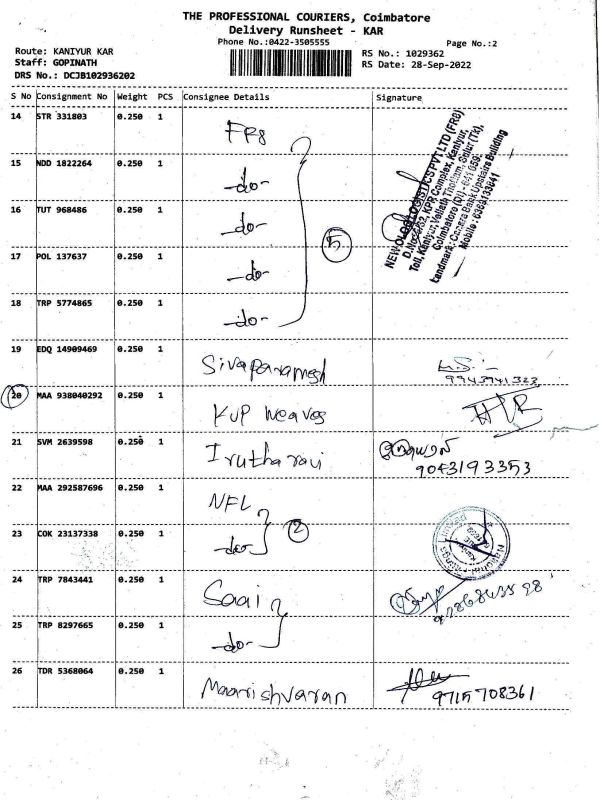 THE PROFESSIONAL COURIERS, Coimbatore
Delivery Runsheet - KAR
Phone No.:0422-3505555
Page No.:2
Route: KANIYUR KAR
RS No.: 1029362
Staff: GOPINATH
RS Date: 28-Sep-2022
DRS No.: DCJB102936202
S No Consignment No Weight PCS Consignee Details Signature
14 STR 331803 0.250 1 FR8
15 NDD 1822264 0.250 1 -do-
16 TUT 968486 0.250 1 -do-
17 POL 137637 0.250 1 -do-
18 TRP 5774865 0.250 1 -do-
5
NEW OLOGI LOGISTICS PVT LTD (FR8)
KPR Complex, Kaniyur,
Toll, Kaniyur, Sulur (Tk),
Coimbatore (Dt) - 641 659.
Landmark: Canara Bank Upstairs Building
Mobile: 6369133641
19 EDQ 14909469 0.250 1 Sivaparamesh
9943941323
20 MAA 938040292 0.250 1 KVP Weaves
21 SVM 2639598 0.250 1 Irutharavi
9043193353
22 MAA 292587696 0.250 1 NFL
23 COK 23137338 0.250 1 -do-
2
24 TRP 7843441 0.250 1 Saai
25 TRP 8297665 0.250 1 -do-
26 TDR 5368064 0.250 1 Maarishvaran
9715708361